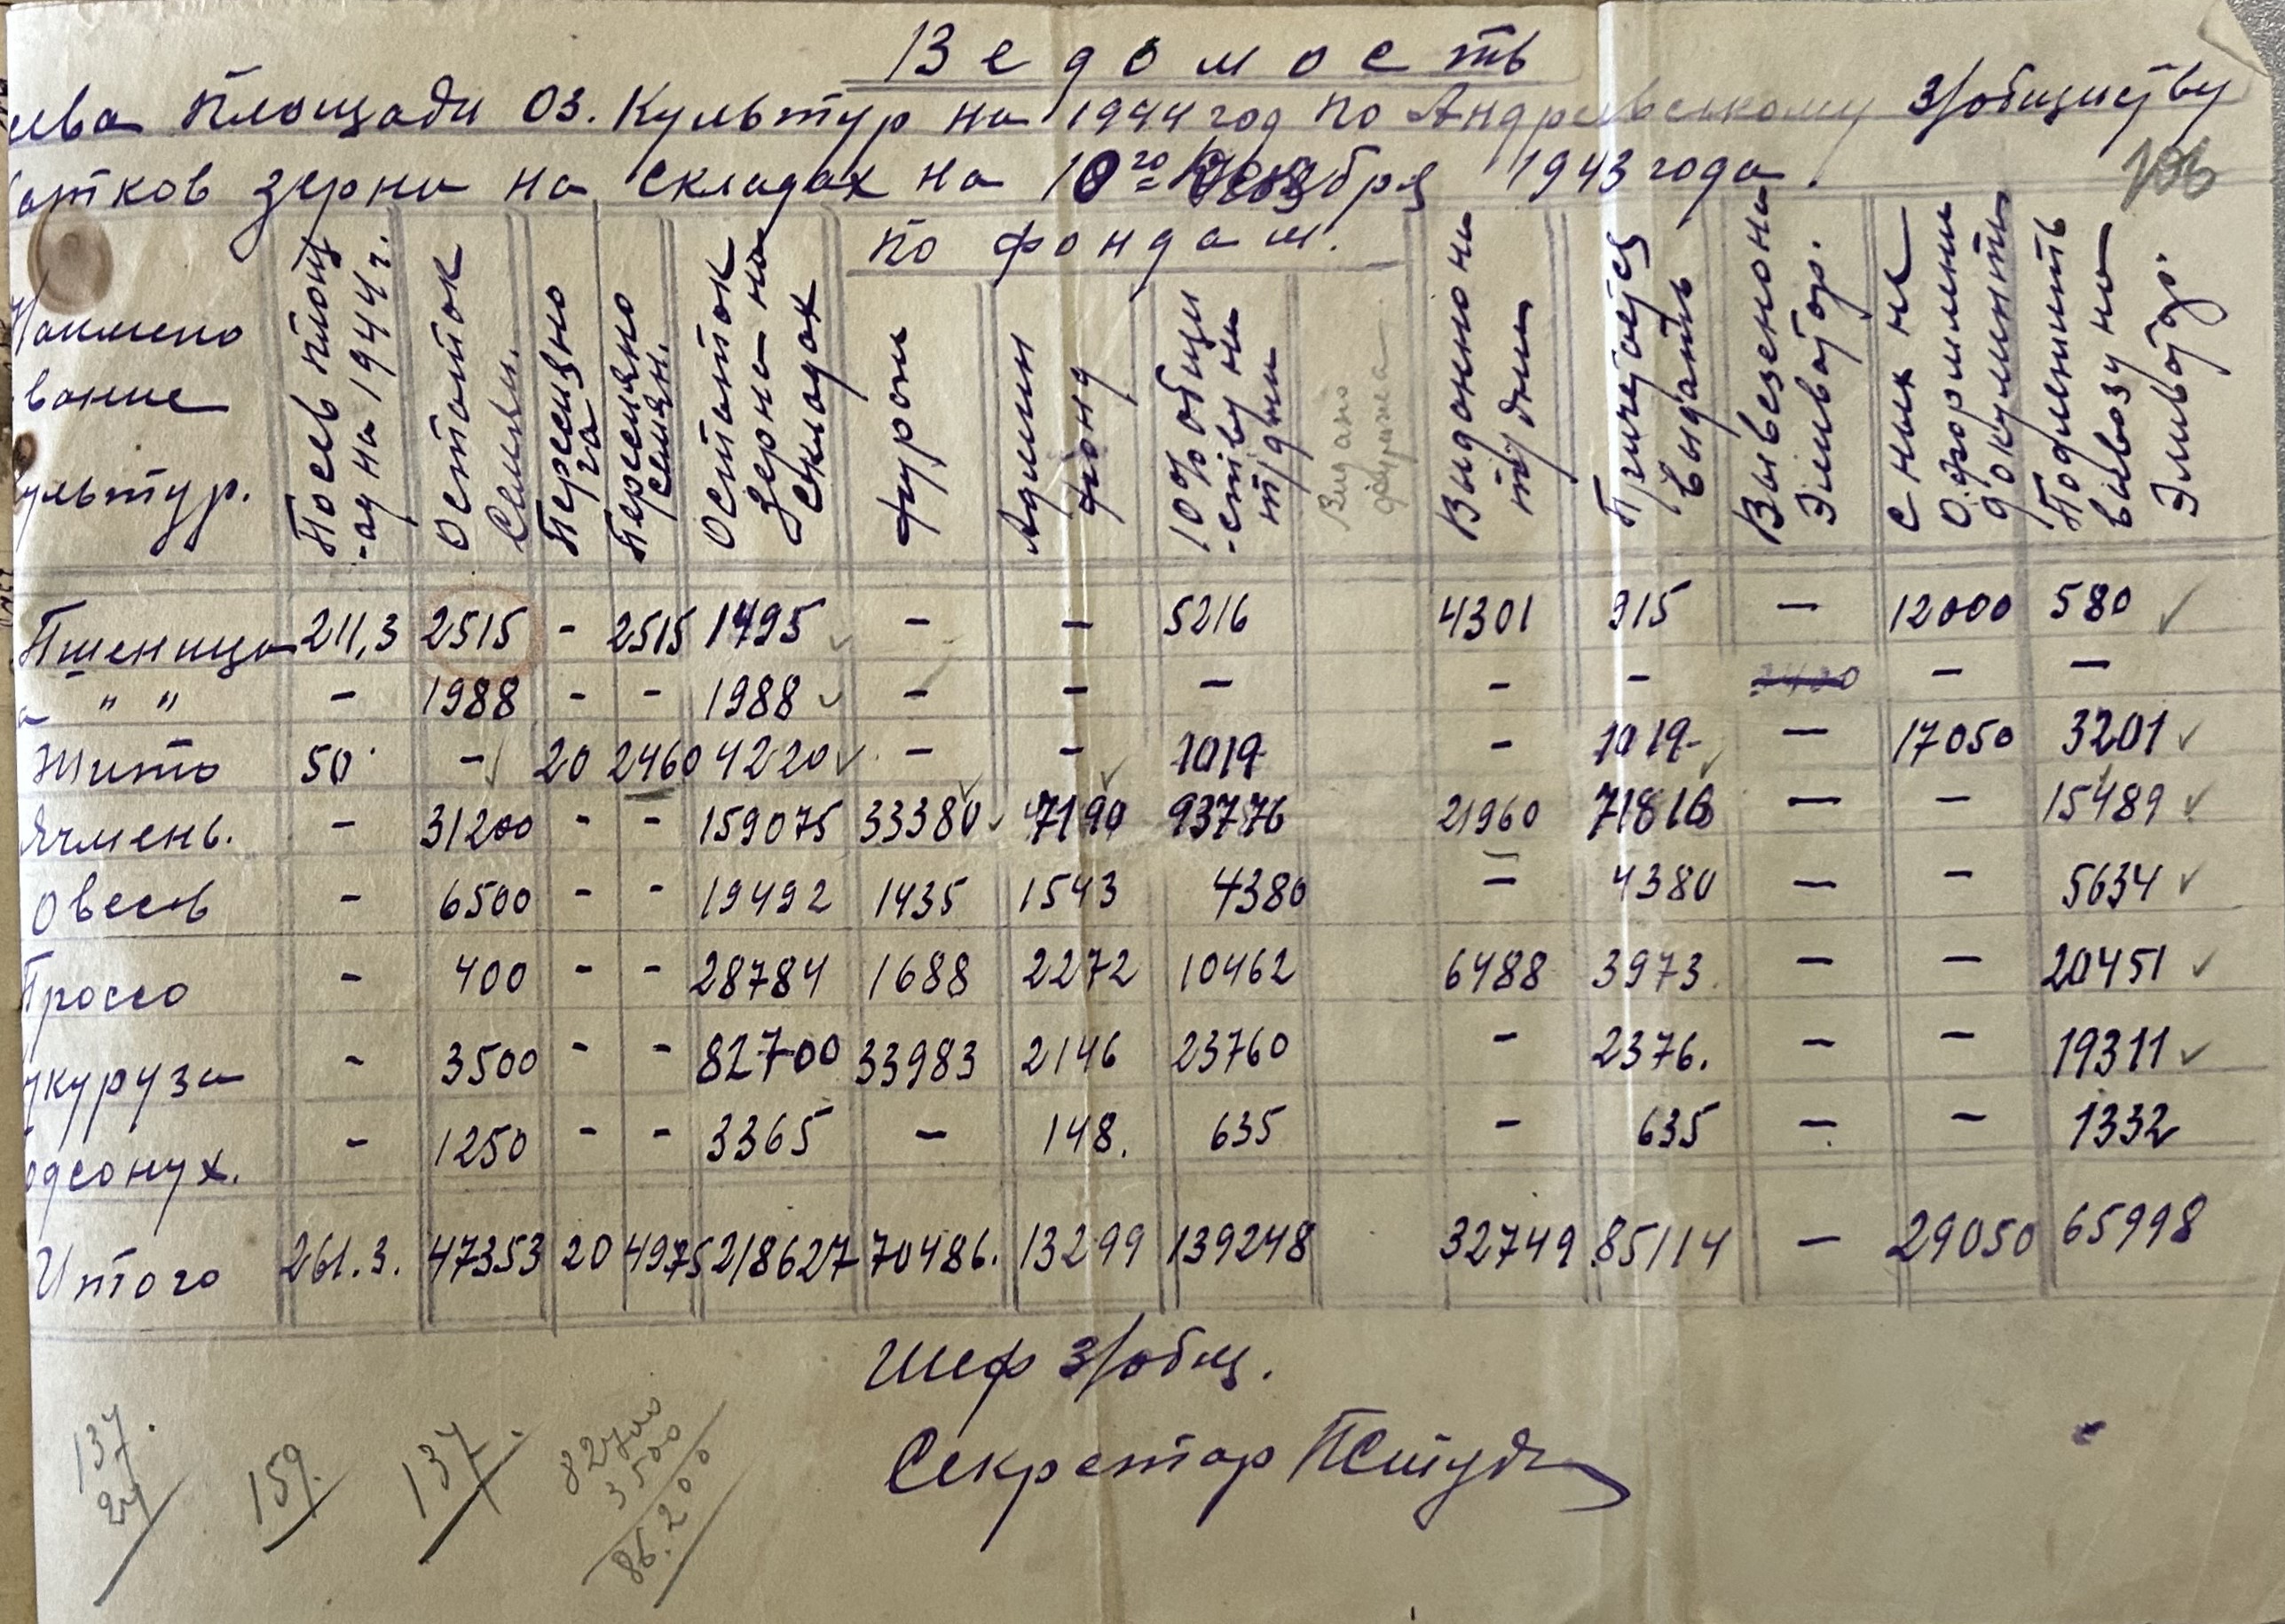 Ведомость
ева площади оз. культур на 1944 год по Андреевскому з/обществу
атков зерна на складах на 10го 1943 года.
106
Наимено
вание
ультур.
Посев площ
-ади на 1944 г.
Остаток
Семян.
Пересеяно
га
Пересеяно
семян.
Остаток
зерна на
складах
по фондам.
фураж
Админ
фонд
10% обще
-ству на
т/дни
Выдано
Выдано на
т/дни
Причетается
выдать
Вывезено на
Элеватор.
С них не
Оформлены
документы
Подлежить
вывозу на
Элеватор.
Пшеница 211,3 2515 - 2515 1495 - - 5216 4301 915 - 12000 580
" " - 1988 - - 1988 - - - - - 2420 - -
Жито 50 - 20 2460 4220 - - 1019 - 1019 - 17050 3201
Ячмень. - 31200 - - 159075 33380 7190 93776 21960 71816 - - 15489
Овесь - 6500 - - 19492 1435 1543 4380 - 4380 - - 5634
Проссо - 400 - - 28784 1688 2272 10462 6488 3973 - - 20451
укуруза - 3500 - - 82700 33983 2146 23760 - 2376. - - 19311
одсонух. - 1250 - - 3365 - 148. 635 - 635 - - 1332
Итого 261.3. 47353 20 4975 218627 70486. 13299 139248 32749 85114 - 29050 65998
Шеф з/общ.
Секретар
137.
24
159.
137.
82700
3500
86.200